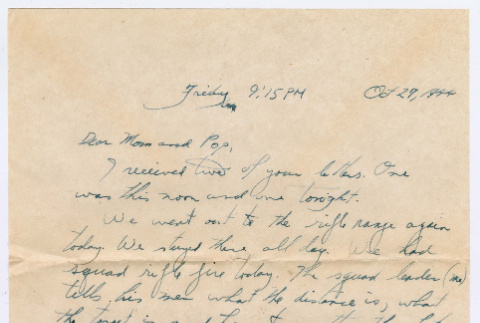 Friday 9:15 PM Oct 29, 1944
Dear Mom and Pop,
I received two of your letters. One
was this noon and one tonight.
We went out to the rifle range again
today. We stayed there all day. We had
squad rifle fire today. The squad leader (me)
tells his men what the distance is, what
the target is